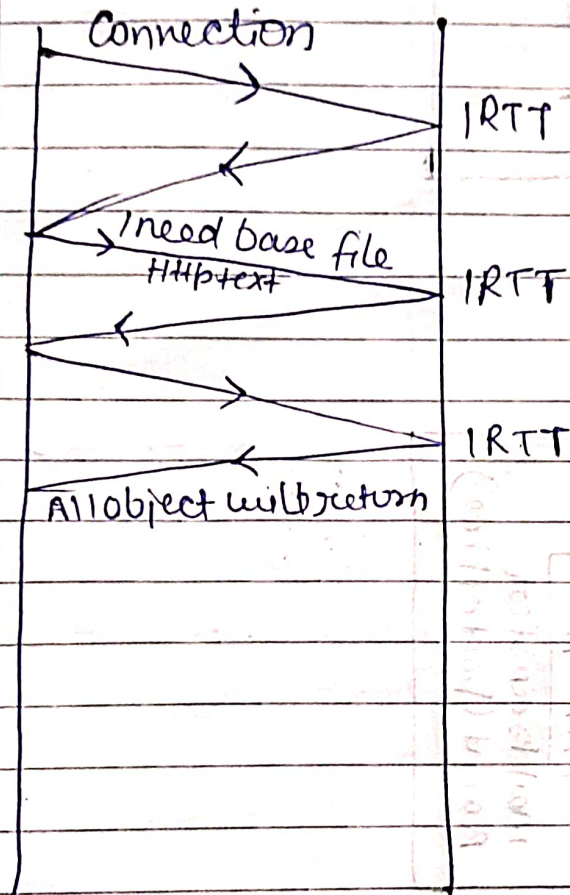 Connection
1RTT
I need base file
Http text
1RTT
1RTT
All object will return